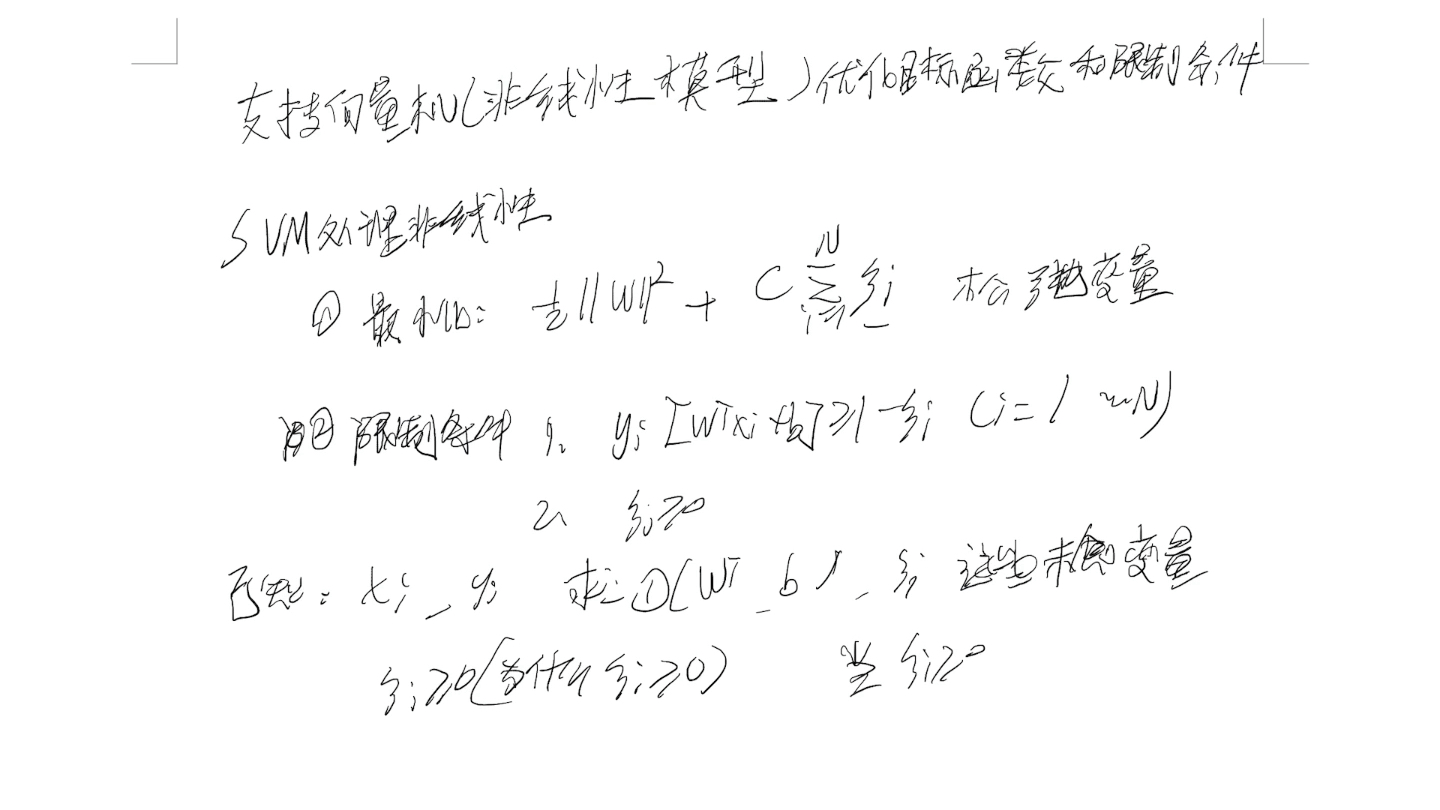 支持向量机(非线性模型)优化目标函数和限制条件
SVM处理非线性
① 最小化: ½||W||² + C Σ_{i=1}^{N} ξi 松弛变量
② 限制条件 1. yi [WTxi+b]≥1-ξi (i=1~N)
2. ξi≥0
已知: xi, yi 求:①(WT, b), ξi 这些未知变量
ξi≥0(为什么ξi≥0) 当 ξi≥0